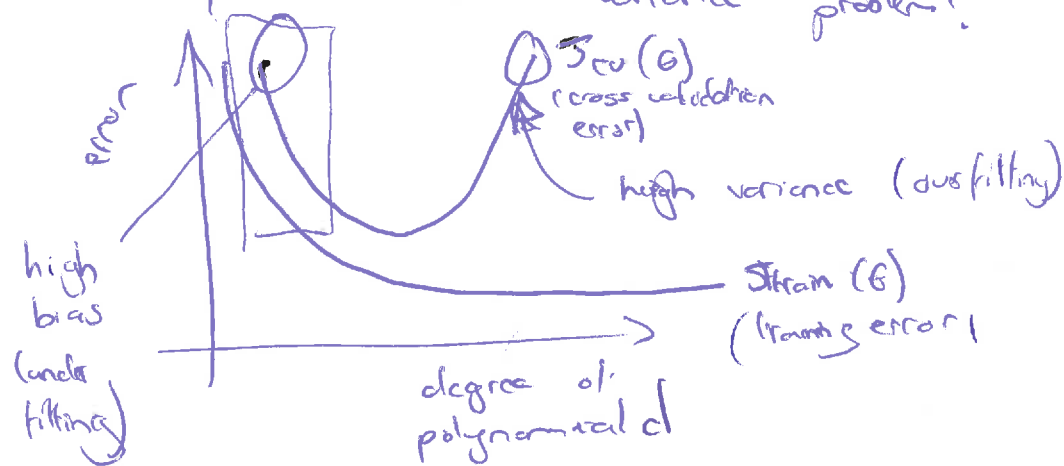 variance problem?
error
Jcv (θ)
(cross validation
error)
high variance (overfitting)
high
bias
(under
fitting)
Jtrain (θ)
(training error)
degree of
polynomial d